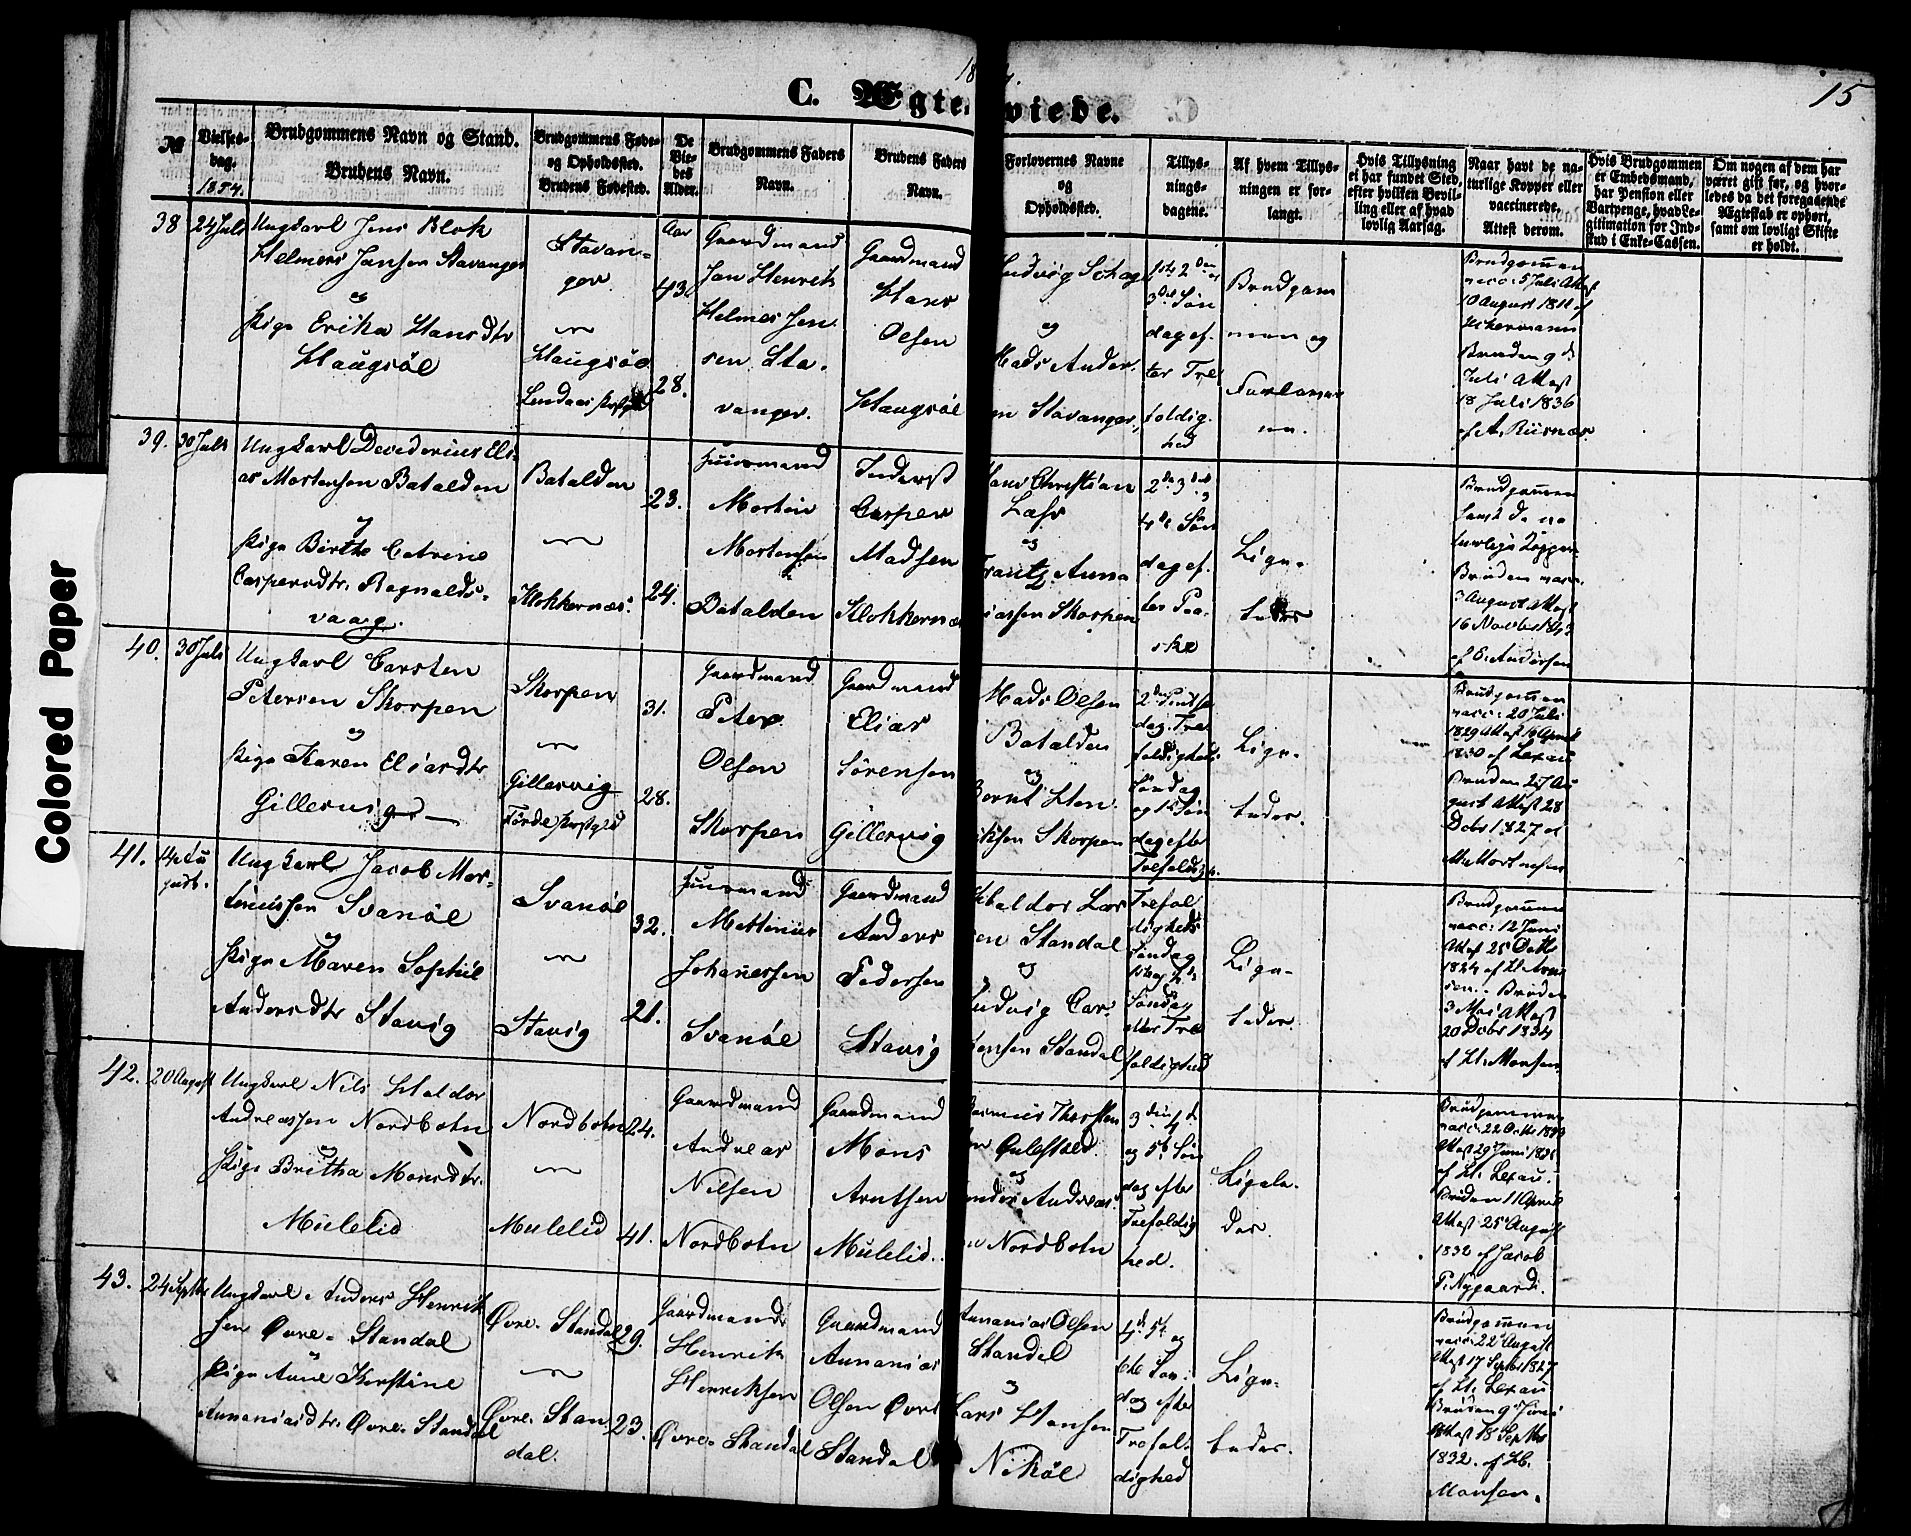 15
C. Ægte viede.
№
Vielses-
dag.
1854.
Brudgommens Navn og Stand.
Brudens Navn.
Brudgommens Føde-
og Opholdssted.
Brudens Fødested.
De
Vie-
des
Alder.
Brudgommens Faders
Navn.
Brudens Faders
Navn.
Forlovernes Navne
og
Opholdssted.
Tillys-
nings-
dagene.
Af hvem Tillys-
ningen er for-
langt.
Hvis Tillysning
ei har fundet Sted,
efter hvilken Bevil-
ling eller af hvad
lovlig Aarsag.
Naar havt de na-
turlige Kopper eller
vaccinerede.
Attest derom.
Hvis Brudgommen
er Embedsmand,
har Pension eller
Vartpenge, hvad Le-
gitimation for Ind-
skud i Enke-Cassen.
Om nogen af dem har
været gift før, og hvor-
ledes da det foregaaende
Ægteskab er ophørt,
samt om lovligt Skifte
er holdt.
38
24 Juli
Ungkarl Jens Blok
Helmers Jansen Stavanger
og
Pige Erika Hansdtr
Haugsøe
Stavan-
ger
Haugsøe
Lindaas Præstgjeld
Aar
43
28.
Gaardmand
Jan Henrik
Helmers Jen
sen Sta-
vanger.
Gaardmand
Hans
Olsen
Haugsøe
og
Mads Ander
en Stavanger,
1ste 2den og
3die Søn
dag ef-
ter Tre
foldig
hed
Brudgom
men og
Forlover
ne.
Brudgommen
vacc: 5 Juli Attest
10 August 1811 af
Bruden 9 d
Juli Attest
18 Juli 1836
39.
30 Juli
Ungkarl Desiderius Eli-
as Mortensen Batalden
og
Pige Birthe Catrine
Caspersdtr. Ragnalds-
vaag.
Batalden
Klokkernæs.
23.
24.
Huusmand
Morten
Mortensen
Batalden
Inderst
Casper
Madsen
Klokkernæs
Hans Christian
og
Frantz Anna
iassen Skorpen
2den 3die og
4de Søn
dag ef-
ter Paa-
ske
Lige-
ledes
Brudgommen
havt de na
turlige Kopper
Bruden vacc.
3 August Attest
16 Novbr 1843
af C. Andersen
40.
30 Juli
Ungkarl Carsten
Petersen Skorpen
og
Pige Karen Eliasdtr
Gillervig
Skorpen
Gillervig
Førde Præstgjeld
31.
28.
Gaardmand
Peter
Olsen
Skorpen
Gaardmand
Elias
Sørensen
Gillervig
Mads Olsen
Batalden
og
Bernt Hen
riksen Skorpen
2den Pintse
dag, Tre
foldigheds
Søndag
og 1ste Søn
dag efter
Trefoldigh.
Lige-
ledes.
Brudgommen
vacc: 20 Juli
1829 Attest 16 April
1830 af Lexau
Bruden 27 Au
gust Attest 28
Decbr 1827 af
M. Mortensen
41.
14 Au
gust.
Ungkarl Jacob Mar-
tinussen Svanøe
og
Pige Maren Sophie
Andersdtr Stavig
Svanøe
Stavig
32.
21.
Huusmand
Martinus
Johanessen
Svanøe
Gaardmand
Anders
Pedersen
Stavig
Haldor Lar
sen Standal
og
Ludvig Car-
stensen Standal
Trefol
digheds
Søndag
1ste og 2den
Søndag
efter Tre
foldighed
Lige-
ledes
Brudgommen
vacc: 12 Juni
Attest 25 Octbr
1824 af H. Arne
sen. Bruden
3 Mai Attest
20 Decbr 1834
af H. Monsen
42.
20 August
Ungkarl Nils Haldor
Andreassen Nordbotn
og
Pige Britha Monsdtr.
Mulelid
Nordbotn
Mulelid
24.
41.
Gaardmand
Andreas
Nilsen
Nordbotn
Gaardmand
Mons
Arntsen
Mulelid.
Rasmus Thorsten
og
Anders Andreas
en Nordbotn
3die 4de
og 5te Søn
dag efter
Trefoldig
hed.
Ligele-
des.
Brudgommen
af H. Lexau.
Bruden 11 April
Attest 25 August
1832 af Jacob
P. Nygaard.
43.
24 Septbr
Ungkarl Anders Henrik
sen Øvre-Standal
og
Pige Anne Kirstine
Annaniasdtr. Øvre-Standal
Øvre-Standal
Øvre-Stan
dal.
29.
23.
Gaardmand
Henrik
Henriksen
Øvre-Standal
Gaardmand
Annanias
Olsen Øvre
Standal
Annanias Olsen
Standal
og
Lars Hansen
Nikøe
4de 5te og
6te Søn-
dag efter
Trefol-
dighed
Lige-
ledes.
Brudgommen
vacc: 22 August
Attest 17 Septbr 1827
af H. Lexau
Bruden 9 Juni
Attest 18 Septbr
1832. af H.
Monsen.
Colored Paper